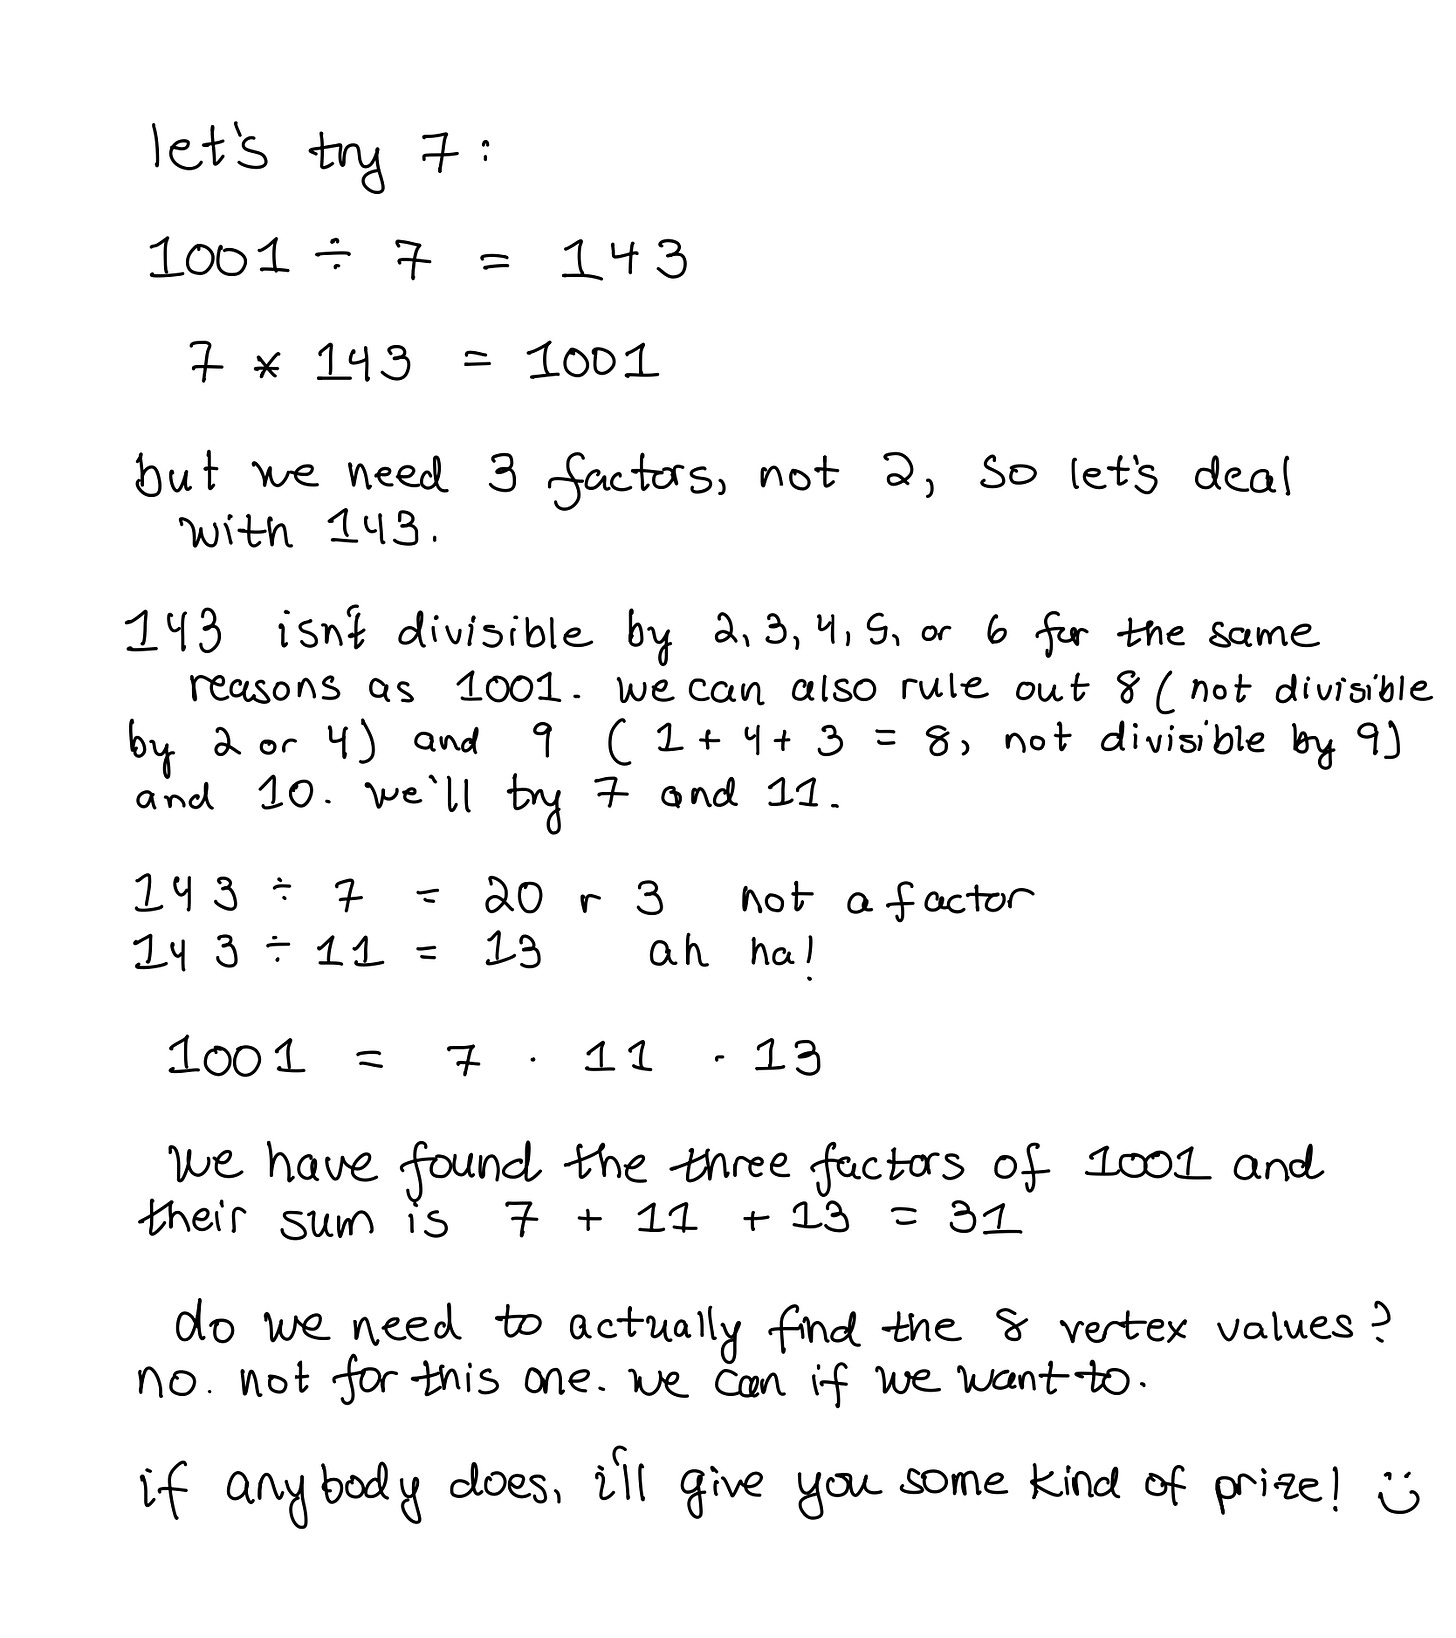 let's try 7:
1001 ÷ 7 = 143
7 * 143 = 1001
but we need 3 factors, not 2, so let's deal
with 143.
143 isn't divisible by 2, 3, 4, 5, or 6 for the same
reasons as 1001. we can also rule out 8 (not divisible
by 2 or 4) and 9 (1 + 4 + 3 = 8, not divisible by 9)
and 10. we'll try 7 and 11.
143 ÷ 7 = 20 r 3 not a factor
143 ÷ 11 = 13 ah ha!
1001 = 7 · 11 · 13
we have found the three factors of 1001 and
their sum is 7 + 11 + 13 = 31
do we need to actually find the 8 vertex values?
no. not for this one. we can if we want to.
if anybody does, i'll give you some kind of prize! :)